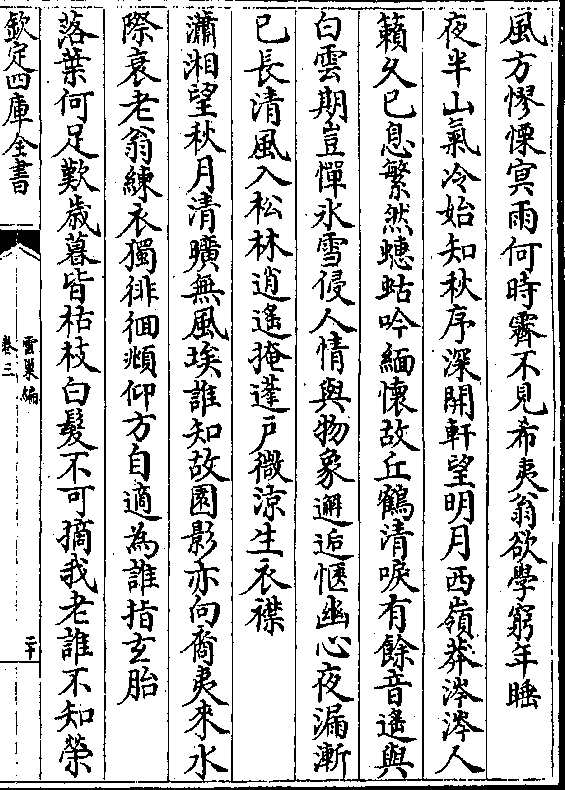 風方憀慄㝠雨何時霽不見希夷翁欲學窮年睡
夜半山氣冷始知秋序深開軒望明月西嶺莽涔涔人
籟久已息繁然蟪蛄吟緬懷故丘鶴清唳有餘音遙與
白雲期豈憚氷雪侵人情與物象邂逅愜幽心夜漏漸
已長清風入松林逍遙掩蓬戸微涼生衣襟
瀟湘望秋月清曠無風埃誰知故園影亦向裔夷來水
際衰老翁練衣獨徘徊頫仰方自適為誰指玄胎
落葉何足歎歳暮皆枯枝白髮不可摘我老誰不知榮
欽定四庫全書
雲巢編
卷三
二十